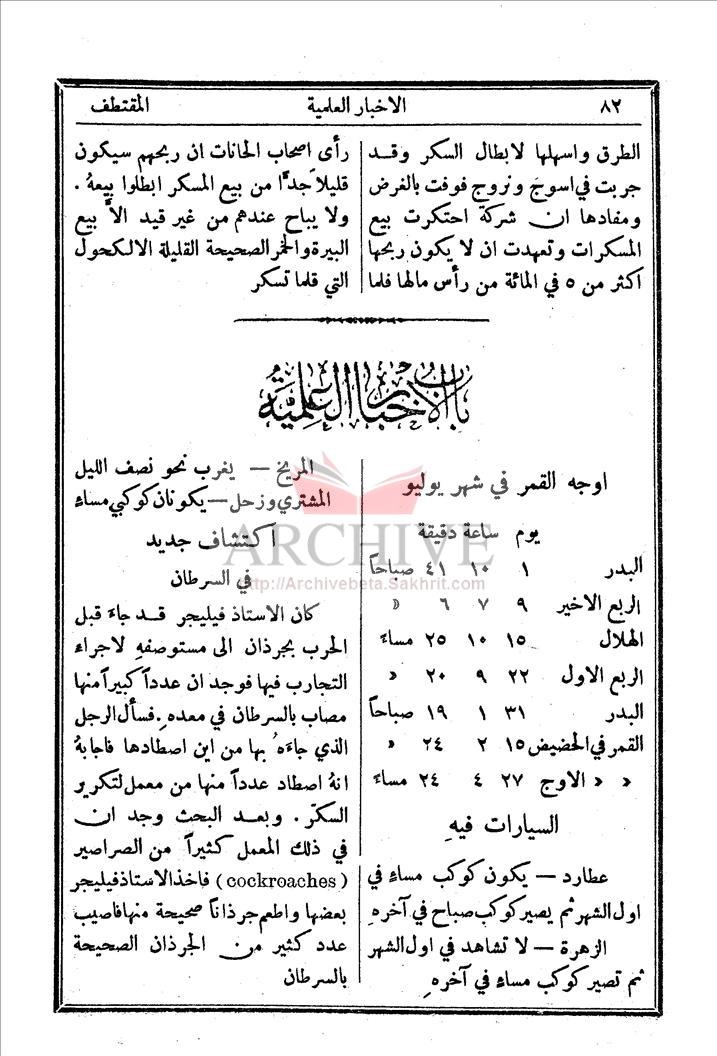 ٨٢
الاخبار العلمية
المقتطف
الطرق واسهلها لابطال السكر وقد
جربت في اسوج ونروج فوفت بالغرض
ومفادها ان شركة احتكرت بيع
المسكرات وتعهدت ان لا يكون ربحها
اكثر من ٥ في المائة من رأس مالها فلما
رأى اصحاب الحانات ان ربحهم سيكون
قليلاً جدًّا من بيع المسكر ابطلوا بيعهُ .
ولا يباح عندهم من غير قيد الاَّ بيع
البيرة والخمر الصحيحة القليلة الالكحول
التي قلما تسكر
باب الاخبار العلمية
اوجه القمر في شهر يوليو
يوم ساعة دقيقة
البدر ١ ١٠ ٤١ صباحاً
الربع الاخير ٩ ٧ ٦ »
الهلال ١٥ ١٠ ٢٥ مساء
الربع الاول ٢٢ ٩ ٢٠ »
البدر ٣١ ١ ١٩ صباحاً
القمر في الحضيض ١٥ ٢ ٢٤ »
» » الاوج ٢٧ ٤ ٢٤ مساء
السيارات فيهِ
عطارد — يكون كوكب مساء في
اول الشهر ثم يصير كوكب صباح في آخرهِ
الزهرة — لا تشاهد في اول الشهر
ثم تصير كوكب مساء في آخرهِ
المريخ — يغرب نحو نصف الليل
المشتري وزحل — يكونان كوكبي مساء
اكتشاف جديد
في السرطان
كان الاستاذ فيليجر قد جاءَ قبل
الحرب بجرذان الى مستوصفهِ لاجراء
التجارب فيها فوجد ان عدداً كبيراً منها
مصاب بالسرطان في معدهِ. فسأل الرجل
الذي جاءَهُ بها من اين اصطادها فاجابهُ
انهُ اصطاد عدداً منها من معمل لتكرير
السكر . وبعد البحث وجد ان
في ذلك المعمل كثيراً من الصراصير
(cockroaches) فاخذ الاستاذ فيليجر
بعضها واطعم جرذاناً صحيحة منها فاصيب
عدد كثير من الجرذان الصحيحة
بالسرطان
ARCHIVE
http://Archivebeta.Sakhrit.com